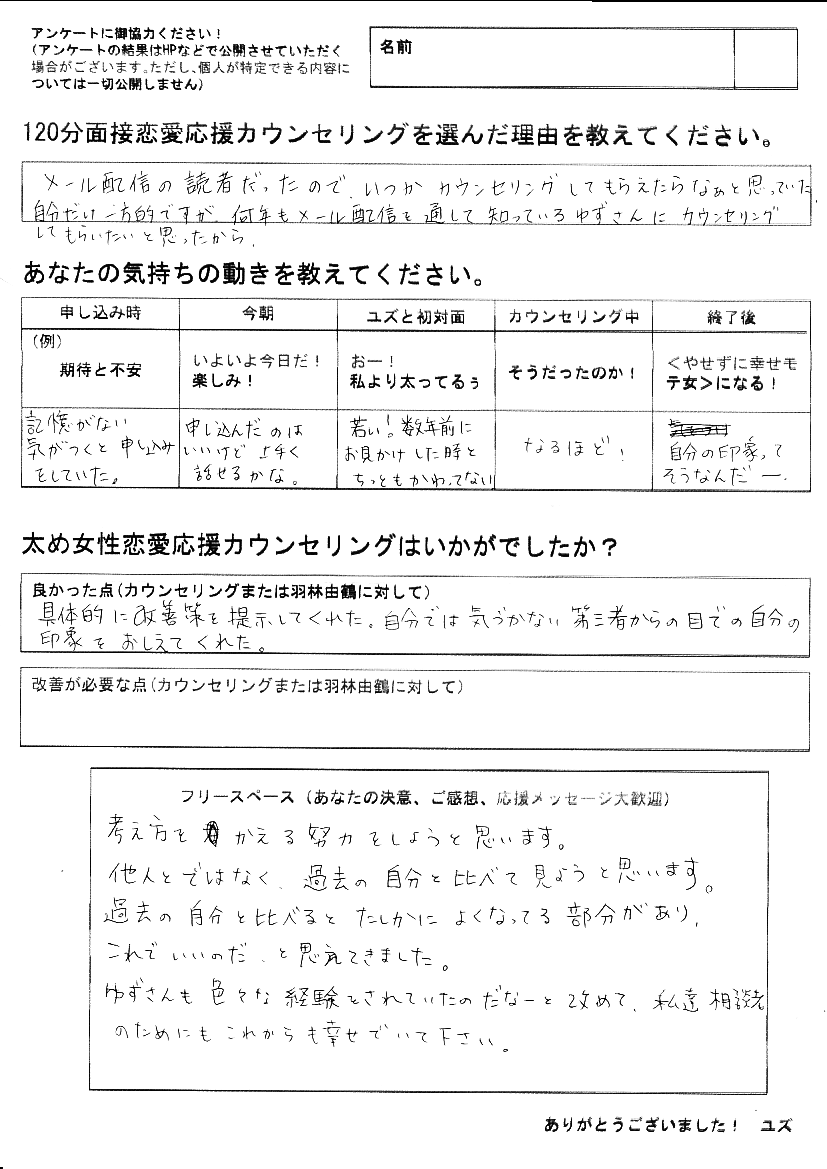 アンケートに御協力ください！
（アンケートの結果はHPなどで公開させていただく
場合がございます。ただし、個人が特定できる内容に
ついては一切公開しません）
名前
120分面接恋愛応援カウンセリングを選んだ理由を教えてください。
メール配信の読者だったので、いつかカウンセリングしてもらえたらなぁと思っていた。
自分だけ一方的ですが、何年もメール配信を通して知っているゆずさんにカウンセリング
してもらいたいと思ったから。
あなたの気持ちの動きを教えてください。
申し込み時 今朝 ユズと初対面 カウンセリング中 終了後
（例）
期待と不安
いよいよ今日だ！
楽しみ！
おー！
私より太ってるぅ
そうだったのか！
＜やせずに幸せモ
テ女＞になる！
記憶がない
気がつくと申し込み
をしていた。
申し込んだのは
いいけど上手く
話せるかな。
若い！数年前に
お見かけした時と
ちっともかわってない
なるほど！
自分の印象って
そうなんだー。
太め女性恋愛応援カウンセリングはいかがでしたか？
良かった点（カウンセリングまたは羽林由鶴に対して）
具体的に改善策を提示してくれた。自分では気づかない第三者からの目での自分の
印象をおしえてくれた。
改善が必要な点（カウンセリングまたは羽林由鶴に対して）
フリースペース（あなたの決意、ご感想、応援メッセージ大歓迎）
考え方をかえる努力をしようと思います。
他人とではなく、過去の自分と比べて見ようと思います。
過去の自分と比べるとたしかによくなってる部分があり、
これでいいのだ、と思えてきました。
ゆずさんも色々な経験をされていたのだなーと改めて、私達相談者
のためにもこれからも幸せでいて下さい。
ありがとうございました！ ユズ